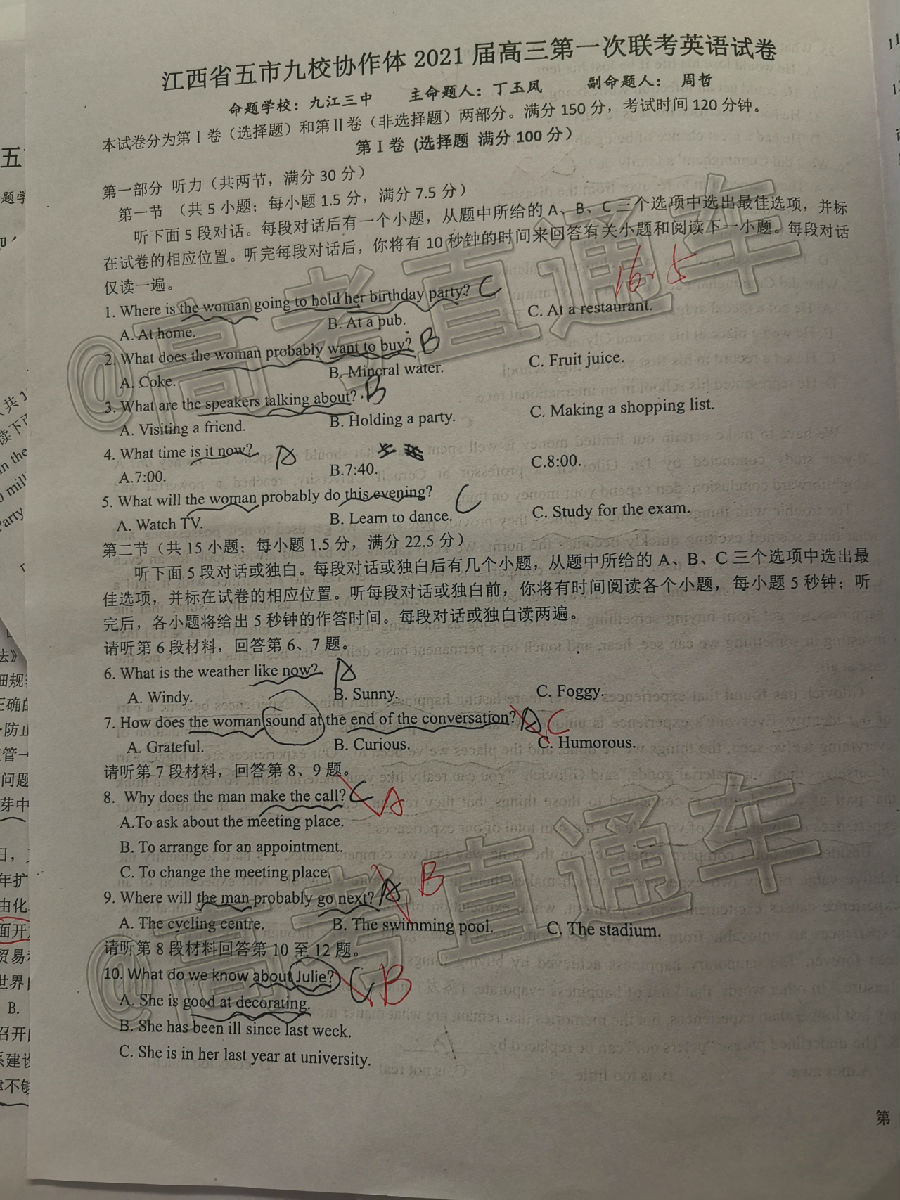 江西省五市九校协作体 2021 届高三第一次联考英语试卷
命题学校：九江三中 主命题人：丁玉凤 副命题人： 周哲
本试卷分为第Ⅰ卷（选择题）和第Ⅱ卷（非选择题）两部分。满分 150 分，考试时间 120 分钟。
第Ⅰ卷 (选择题 满分 100 分）
第一部分 听力（共两节，满分 30 分）
第一节 （共 5 小题；每小题 1.5 分，满分 7.5 分）
听下面 5 段对话。每段对话后有一个小题，从题中所给的 A、B、C 三个选项中选出最佳选项，并标
在试卷的相应位置。听完每段对话后，你将有 10 秒钟的时间来回答有关小题和阅读下一小题。每段对话
仅读一遍。
16.5
1. Where is the woman going to hold her birthday party? C
A. At home. B. At a pub. C. At a restaurant.
2. What does the woman probably want to buy? B
A. Coke. B. Mineral water. C. Fruit juice.
3. What are the speakers talking about? B
A. Visiting a friend. B. Holding a party. C. Making a shopping list.
4. What time is it now? A
A.7:00. B.7:40. C.8:00.
5. What will the woman probably do this evening? C
A. Watch TV. B. Learn to dance. C. Study for the exam.
第二节（共 15 小题；每小题 1.5 分，满分 22.5 分）
听下面 5 段对话或独白。每段对话或独白后有几个小题，从题中所给的 A、B、C 三个选项中选出最
佳选项，并标在试卷的相应位置。听每段对话或独白前，你将有时间阅读各个小题，每小题 5 秒钟；听
完后，各小题将给出 5 秒钟的作答时间。每段对话或独白读两遍。
请听第 6 段材料，回答第 6、7 题。
6. What is the weather like now? A
A. Windy. B. Sunny. C. Foggy.
7. How does the woman sound at the end of the conversation? A C
A. Grateful. B. Curious. C. Humorous.
请听第 7 段材料，回答第 8、9 题。
8. Why does the man make the call? C A
A.To ask about the meeting place.
B. To arrange for an appointment.
C. To change the meeting place.
9. Where will the man probably go next? A B
A. The cycling centre. B. The swimming pool. C. The stadium.
请听第 8 段材料回答第 10 至 12 题。
10. What do we know about Julie? C B
A. She is good at decorating.
B. She has been ill since last week.
C. She is in her last year at university.
第
@高考直通车
@高考直通车